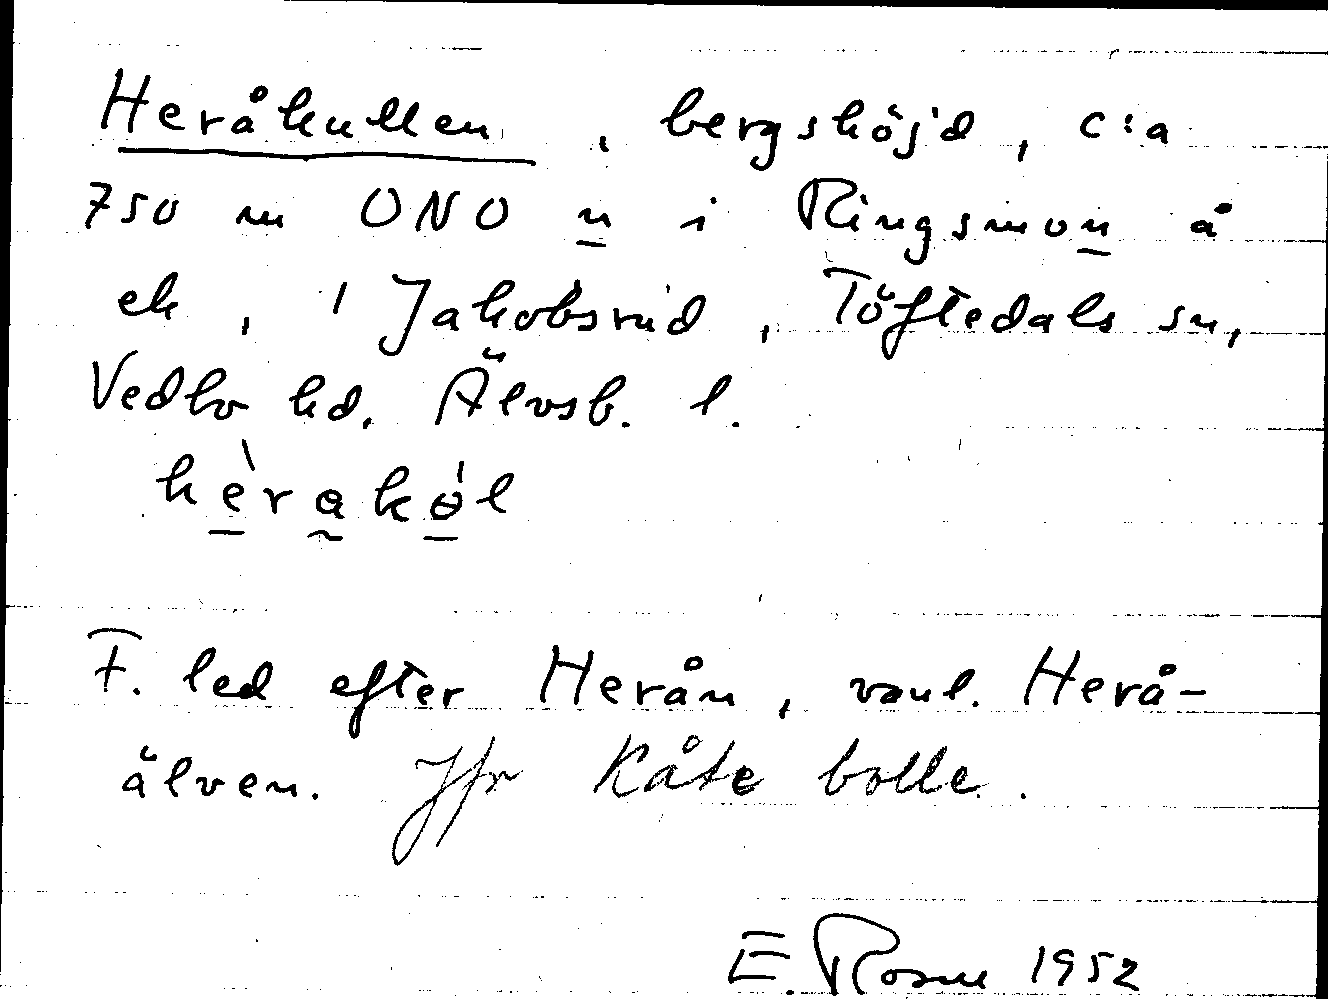 Heråkullen, bergshöjd, c:a
750 m ONO n i Ringsmon å
ek, i Jakobsrud, Töftedals sn,
Vedbo hd. Älvsb. l.
hèrakól
F. led efter Herån, vanl. Herå-
älven. Jfr Kåte bolle.
E. Rosne 1952